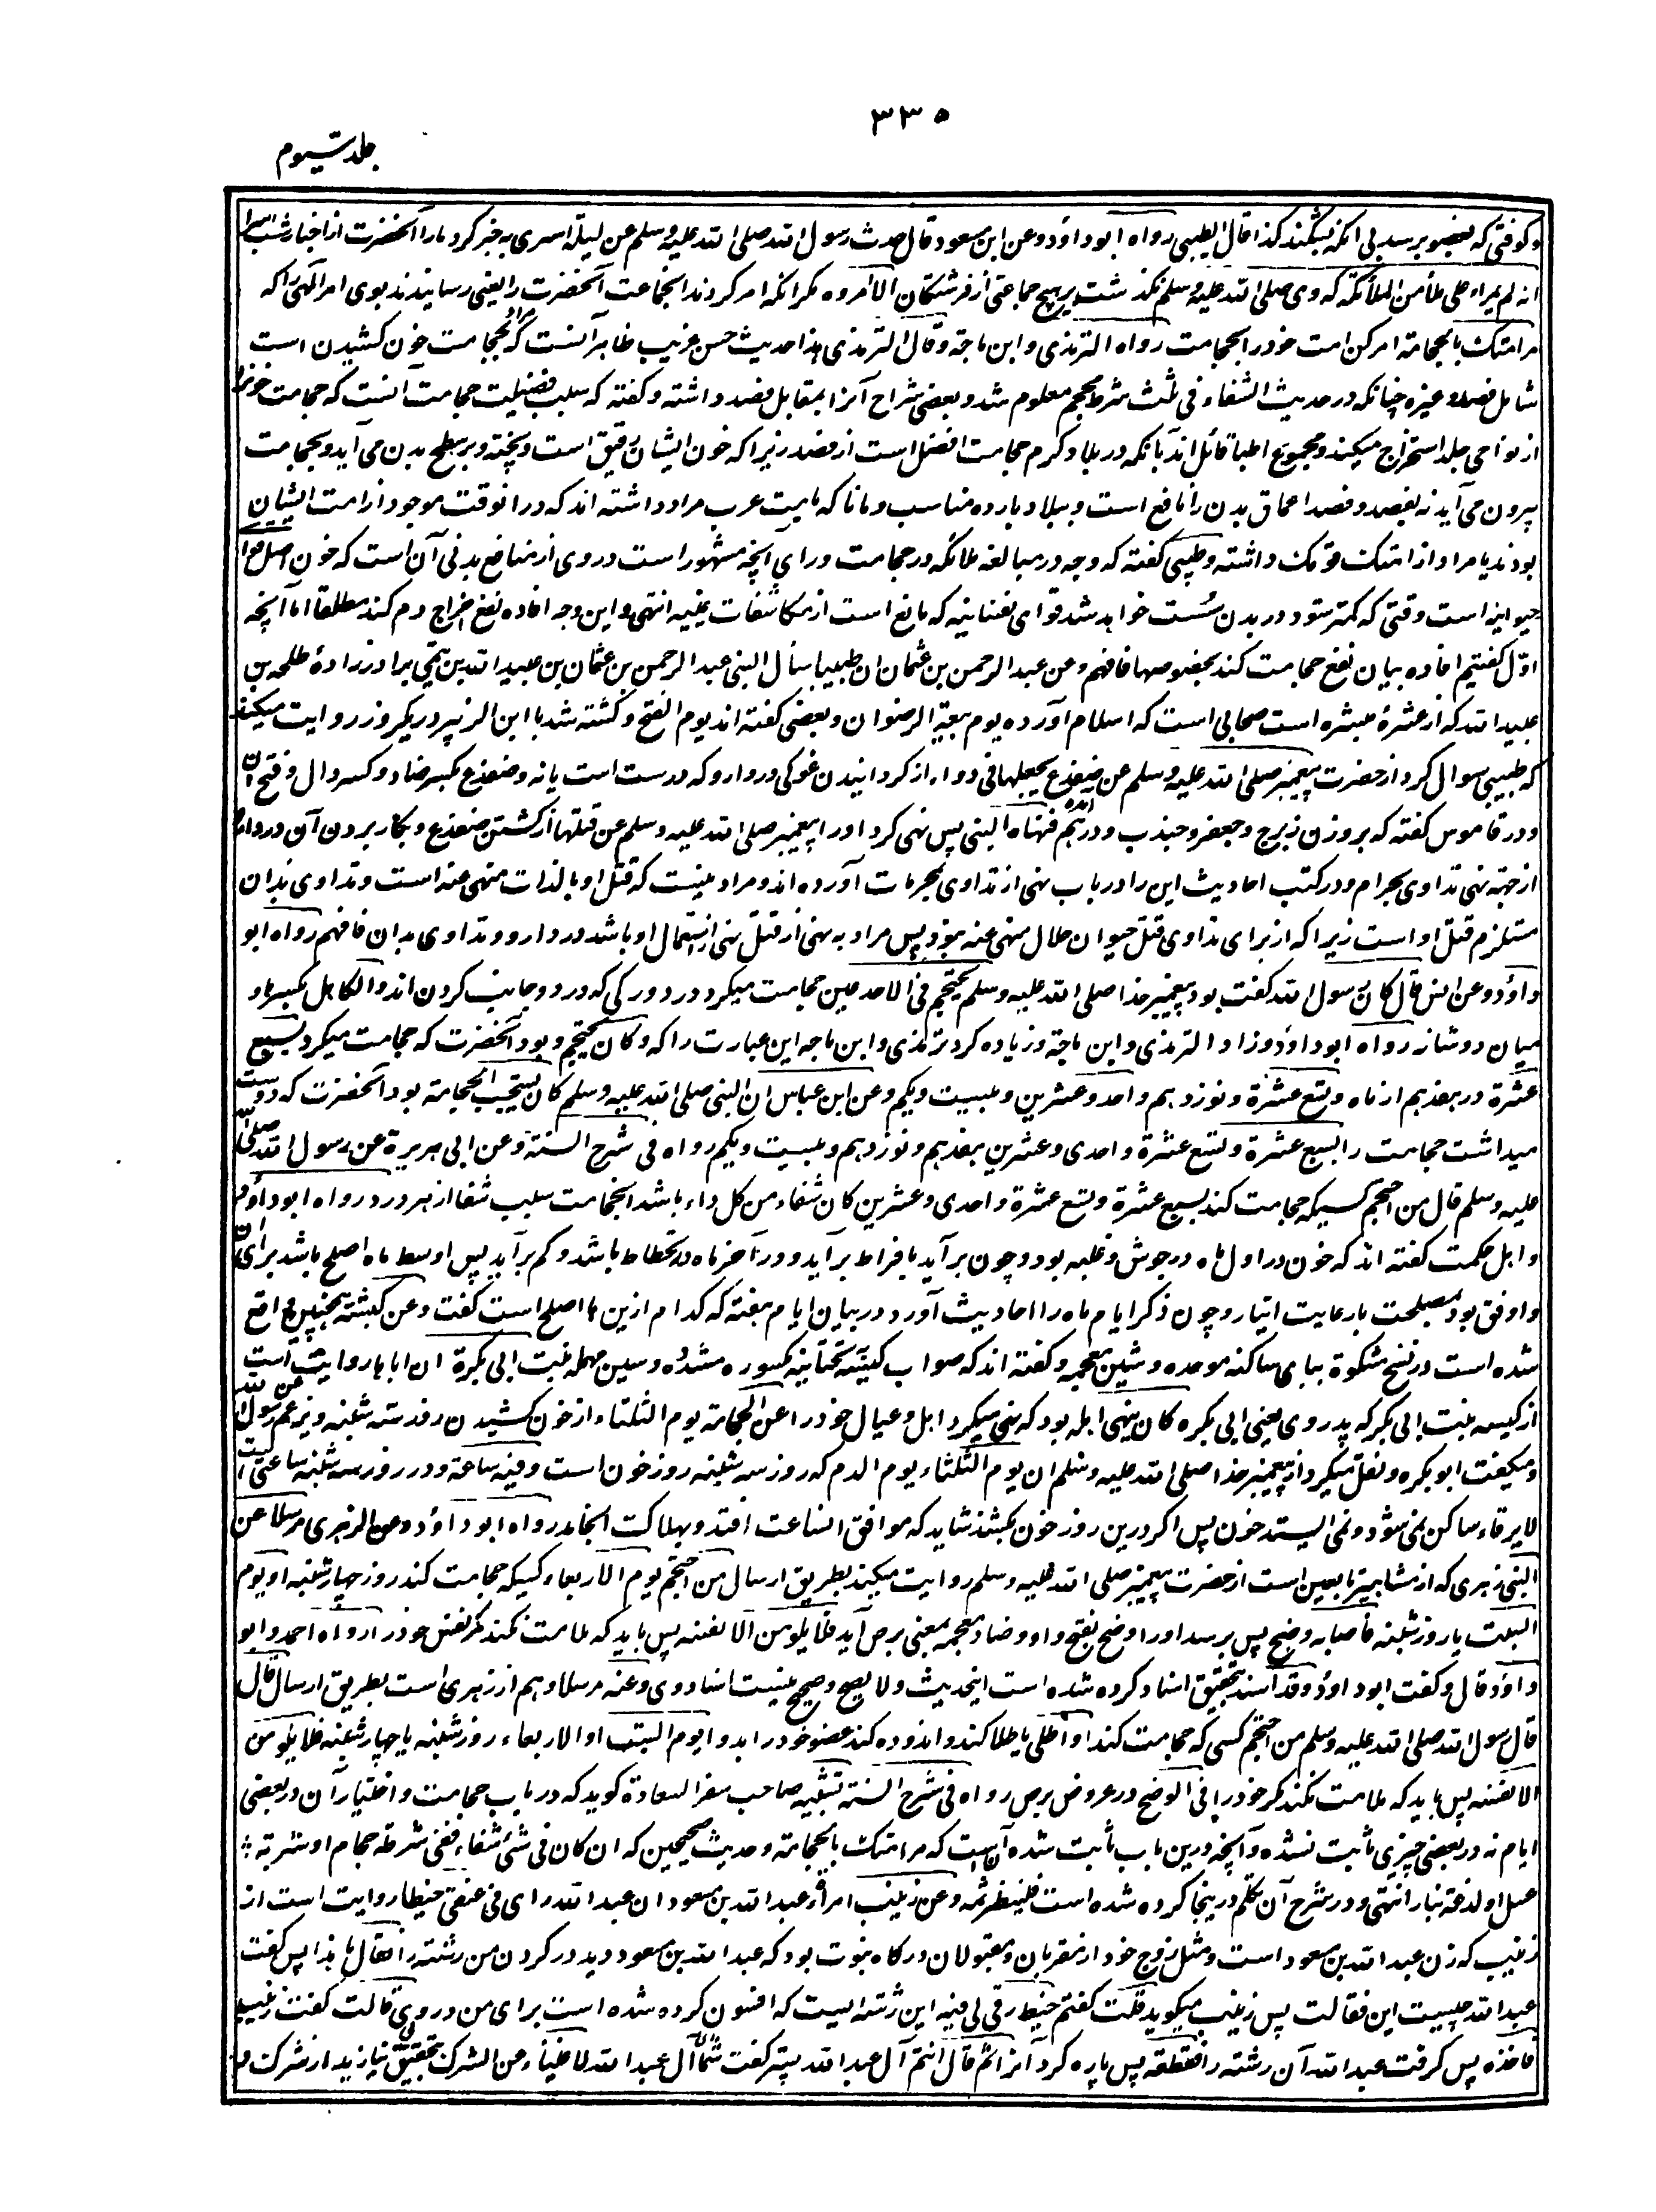 ۳۳۵
جلد سیوم
و کوفتی که بعضو برسد بی انکه بشکند کذا قال الطیبی رواه ابو داؤد و عن ابن مسعود قال حدث رسول الله صلی الله علیه وسلم عن لیلة اسری به خبر کرد ما را آنحضرت از اخبار شب اسرا
انه لم یمر علی ملأ من الملائکة که وی صلی الله علیه وسلم نگذشت بر هیچ جماعتی از فرشتگان الا امروه مگر انکه امر کردند انجماعت آنحضرت را یعنی رسانیدند بوی امر الٰهی را که
مر امتک بالحجامة امر کن امت خود را بحجامت رواه الترمذی و ابن ماجة و قال الترمذی هذا حدیث حسن غریب ظاهر آنست که مراد بحجامت خون کشیدن است
شامل فصد و غیره چنانکه در حدیث الشفاء فی ثلث شرطة محجم معلوم شد و بعضی شراح آنرا بمقابل فصد داشته و گفته که سبب فضیلت حجامت آنست که حجامت خون را
از نواحی جلد استخراج میکند و مجموع اطبا قائل اند بآنکه در بلاد گرم حجامت افضل است از فصد زیرا که خون ایشان رقیق است و پخته و بر سطح بدن می آید و بحجامت
بیرون می آید نه بفصد و فصد اعماق بدن را نافع است و ببلاد بارده مناسب و مانا که بامت عرب مراد داشته اند که در انوقت موجود از امت ایشان
بودند یا مراد از امتک قومک داشته و طیبی گفته که وجه در مبالغه ملائکه در حجامت ورای آنچه مشهور است در وی از منافع بدنی آن است که خون اصل قوای
حیوانیه است و وقتی که کمتر شود در بدن سست خواهد شد قوای نفسانیه که مانع است از مکاشفات غیبیه انتهی و این وجه افاده نفع اخراج دم کند مطلقا اما آنچه
اوّل گفتیم افاده بیان نفع حجامت کند بخصوصها فافهم و عن عبد الرحمن بن عثمان ان طبیبا سأل النبی عبد الرحمن بن عثمان بن عبید الله بن تیمی برادر زادهٔ طلحه بن
عبید الله که از عشرهٔ مبشره است صحابی است که اسلام آورده یوم بیعة الرضوان و بعضی گفته اند یوم الفتح و کشته شد با ابن الزبیر در یکروز روایت میکند
که طبیبی سوال کرد از حضرت پیغمبر صلی الله علیه وسلم عن ضفدع یجعلها فی دواء از گردانیدن غوکی در دارو که درست است یا نه و ضفدع بکسر ضاد و کسر دال و فتح آن
و در قاموس گفته که بروزن زبرج و جعفر و جندب و درهم آمده فنهاه النبی پس نهی کرد او را پیغمبر صلی الله علیه وسلم عن قتلها از کشتن ضفدع و بکار بردن آن در دوا
از جهة نهی تداوی بحرام و در کتب احادیث این را در باب نهی از تداوی بمحرمات آورده اند و مراد نیست که قتل او بالذات منهی عنه است و تداوی بدان
مستلزم قتل او است زیرا که از برای تداوی قتل حیوان حلال منهی عنه نبود پس مراد به نهی از قتل نهی از استعمال او باشد در دارو و تداوی بدان فافهم رواه ابو
داؤد و عن انس قال کان رسول الله گفت بود پیغمبر خدا صلی الله علیه وسلم یحتجم فی الاخدعین حجامت میکرد در دو رگی که در دو جانب گردن اند و الکاهل بکسر ها و
میان دو شانه رواه ابو داؤد و زاد الترمذی و ابن ماجة و زیاده کرد ترمذی و ابن ماجه این عبارت را که و کان یحتجم و بود آنحضرت که حجامت میکرد لسبع
عشرة در هفدهم از ماه و تسع عشرة و نوزدهم و احدی و عشرین و بیست و یکم و عن ابن عباس ان النبی صلی الله علیه وسلم کان یستحب الحجامة بود آنحضرت که دوست
میداشت حجامت را لسبع عشرة و تسع عشرة و احدی و عشرین بهفدهم و نوزدهم و بیست و یکم رواه فی شرح السنة و عن ابی هریرة عن رسول الله صلی الله
علیه وسلم قال من احتجم کسیکه حجامت کند لسبع عشرة و تسع عشرة و احدی و عشرین کان شفاء من کل داء باشد انحجامت سبب شفا از هر درد رواه ابو داؤد
و اهل حکمت گفته اند که خون در اول ماه در جوش و غلبه بود و چون بر آید بافراط بر آید و در آخر ماه در انحطاط باشد و کم بر آید پس اوسط ماه اصلح باشد برای آن
و اوفق بود بمصلحت با رعایت ایتار و چون ذکر ایام ماه را احادیث آورد در بیان ایام هفته که کدام ازین ها اصلح است گفت و عن کبشة همچنین واقع
شده است در نسخ مشکوة ببای ساکنه موحده و شین معجمه و گفته اند که صواب کیسه بتحتانیه مکسوره مشدده و سین مهمله بنت ابی بکرة ان اباها روایت است
از کیسه بنت ابی بکر که پدر وی یعنی ابی بکره کان ینهی اهله بود که نهی میکرد اهل و عیال خود را عن الحجامة یوم الثلثاء از خون کشیدن روز سه شنبه و یزعم عن رسول الله
و میگفت ابو بکره و نقل میکرد از پیغمبر خدا صلی الله علیه وسلم ان یوم الثلثاء یوم الدم که روز سه شنبه روز خون است و فیه ساعة و در روز سه شنبه ساعتی است
لا یرقاء ساکن نمی شود و نمی ایستد خون پس اگر درین روز خون بکشند شاید که موافق انساعت افتد و بهلاکت انجامد رواه ابو داؤد و عن الزهری مرسلا عن
النبی زهری که از مشاهیر تابعین است از حضرت پیغمبر صلی الله علیه وسلم روایت میکند بطریق ارسال من احتجم یوم الاربعاء کسیکه حجامت کند روز چهارشنبه او یوم
السبت یا روز شنبه فاصابه وضح پس برسد او را وضح بفتح واو و ضاد معجمه بمعنی برص آید فلا یلومن الا نفسه پس باید که ملامت نکند مگر نفس خود را رواه احمد و ابو
داؤد و قال و گفت ابو داؤد و قد اسند بتحقیق اسناد کرده شده است اینحدیث و لا یصح و صحیح نیست اسناد وی و عنه مرسلا و هم از زهری است بطریق ارسال قال
قال رسول الله صلی الله علیه وسلم من احتجم کسی که حجامت کند او اطلی یا طلا کند و اندوده کند عضو خود را بدوا یوم السبت او الاربعاء روز شنبه یا چهارشنبه فلا یلومن
الا نفسه پس باید که ملامت نکند مگر خود را فی الوضح در عروض برص رواه فی شرح السنة تنبیه صاحب سفر السعادة گوید که در باب حجامت و اختیار آن در بعضی
ایام نه در بعضی چیزی ثابت نشده و آنچه درین باب ثابت شده آنست که مر امتک بالحجامة و حدیث صحیحین که ان کان فی شئ شفاء ففی شرطة حجام او شربة
عسل او لذعة بنار انتهی و در شرح آن تکلم درینجا کرده شده است فلینظر ثمه و عن زینب امرأة عبد الله بن مسعود ان عبد الله رای فی عنقی خیطا روایت است از
زینب که زن عبد الله بن مسعود است و مثل زوج خود از مقربان و مقبولان درگاه نبوت بود که عبد الله بن مسعود دید در گردن من رشته را فقال ما هذا پس گفت
عبد الله چیست این فقالت پس زینب میگوید قلت گفتم خیط رقی لی فیه این رشته ایست که افسون کرده شده است برای من در وی قالت گفت زینب
فاخذه پس گرفت عبد الله آن رشته را فقطعه پس پاره کرد آنرا ثم قال انتم آل عبد الله پستر گفت شما ای آل عبد الله لاغنیاء عن الشرک بتحقیق بی نیازید از شرک